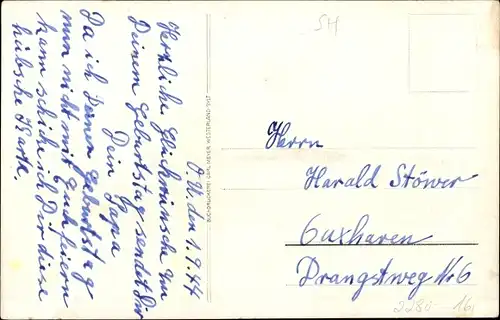 O.U. den 1.9.44
Herzliche Glückwünsche zu
Deinem Geburtstag sendet Dir
Dein Papa
Da ich Deinen Geburtstag
nun nicht mit Euch feiern
kann schicke ich Dir diese
hübsche Karte.
BUCHDRUCKEREI CARL MEYER, WESTERLAND-SYLT
SH
Herrn
Harald Stöwer
Cuxhaven
Drangstweg No 6
2280 16